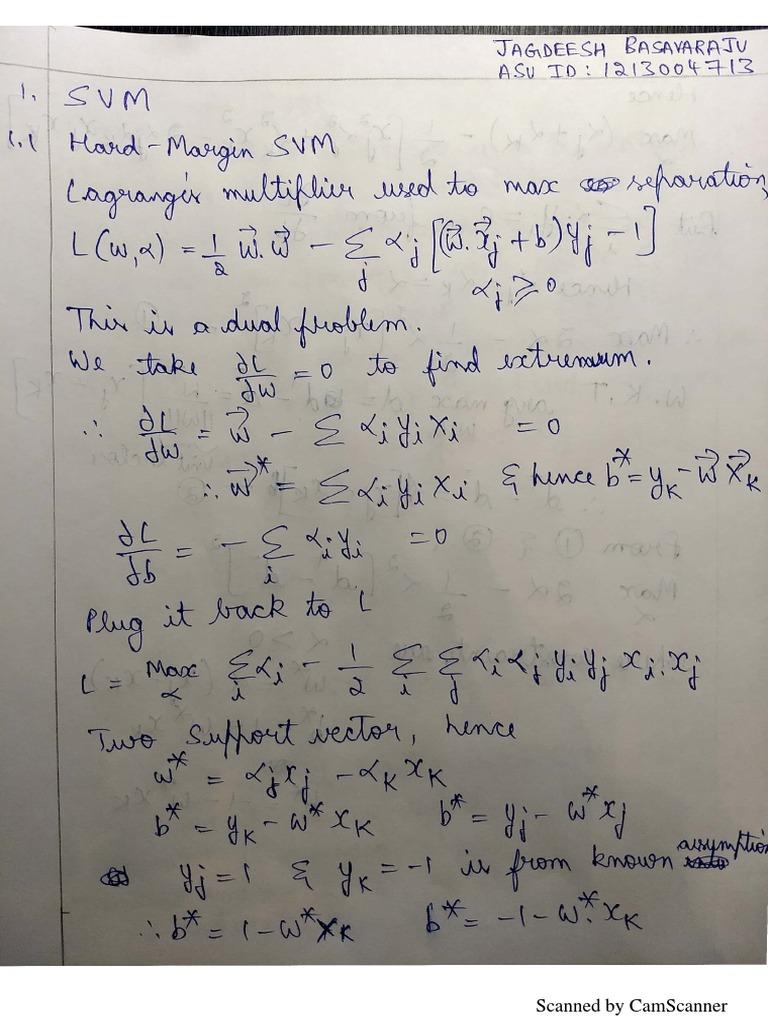 JAGDEESH BASAVARAJU
ASU ID: 1213004713
1. SVM
1.1 Hard-Margin SVM
Lagrange's multiplier used to max separation,
L(w,α) = 1/2 w⃗.w⃗ - Σ_j αj [(w⃗.x⃗j + b)yj - 1]
αj ≥ 0
This is a dual problem.
We take ∂L/∂w = 0 to find extremum.
∴ ∂L/∂w = w⃗ - Σ αi yi xi = 0
∴ w⃗* = Σ αi yi xi & hence b* = yK - w⃗ x⃗K
∂L/∂b = - Σ_i αi yi = 0
Plug it back to L
L = Max_α Σ_i αi - 1/2 Σ_i Σ_j αi αj yi yj xi.xj
Two support vector, hence
w* = αj xj - αK xK
b* = yK - w* xK b* = yj - w* xj
yj = 1 & yK = -1 is from known assymption
∴ b* = 1 - w* xK b* = -1 - w*. xK
Scanned by CamScanner